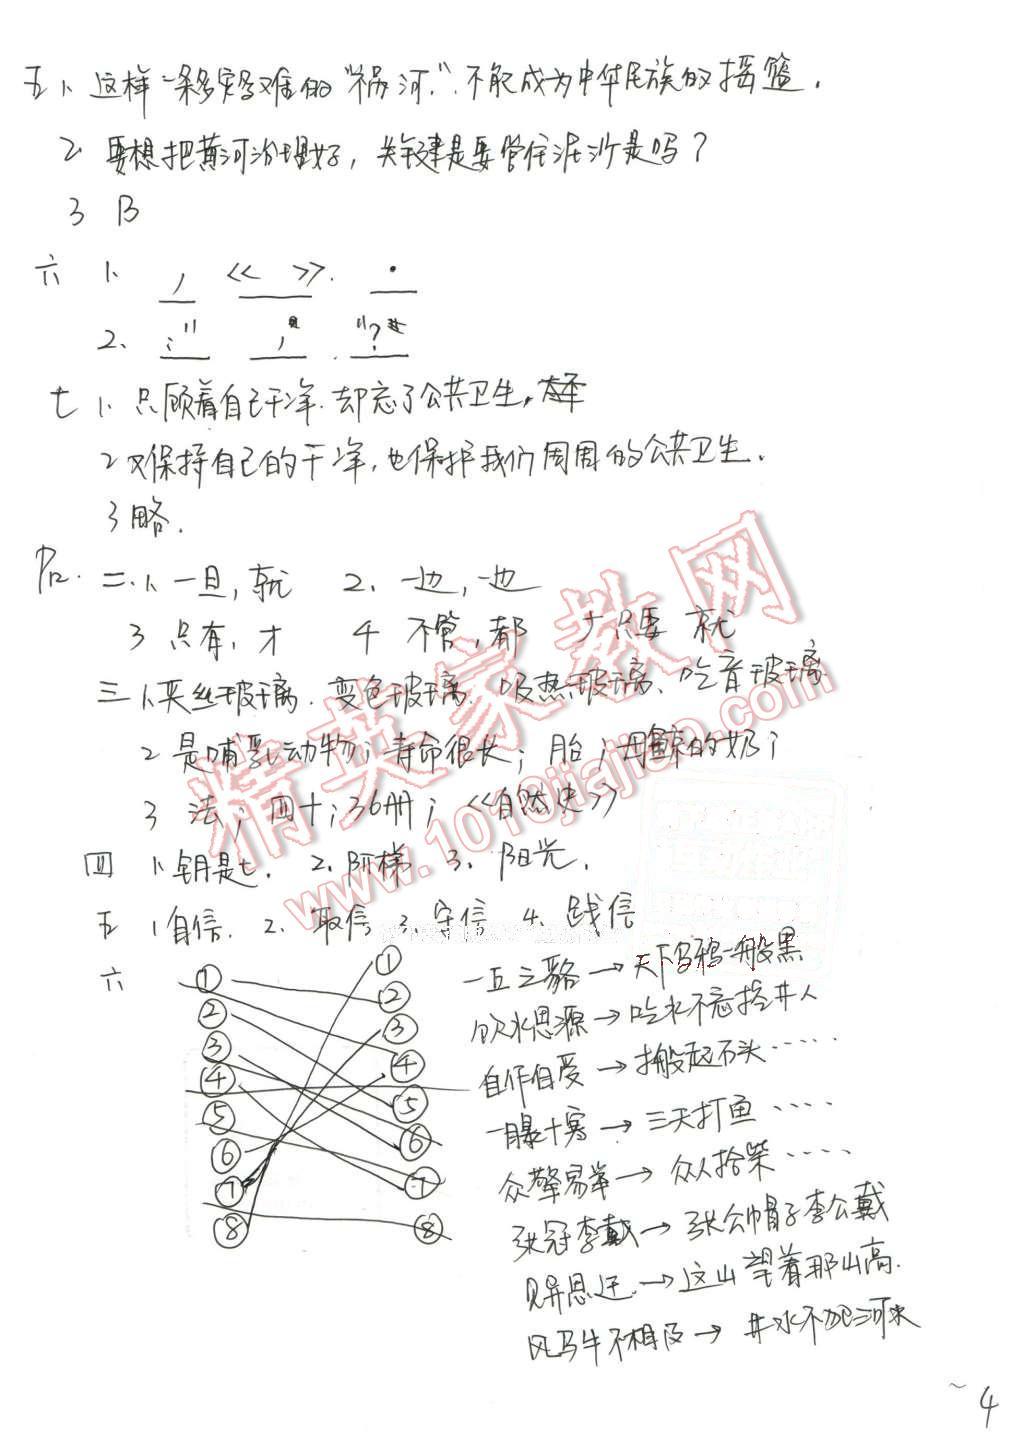 五 1、这样一条多灾多难的“祸河”,不能成为中华民族的摇篮.
2 要想把黄河治理好, 关键是要管住泥沙是吗?
3 B
六 1、 , 《 》. ·
2、 :“ , “?”
七 1、只顾着自己干净.却忘了公共卫生.
2 又保持自己的干净,也保护我们周围的公共卫生.
3 略.
二.1、一旦,就 2、一边,一边
3 只有,才 4 不管,都 5 只要 就
三 1、夹丝玻璃.变色玻璃.吸热玻璃、吃音玻璃
2 是哺乳动物;寿命很长;胎;母鲸的奶;
3 法;四十;36册;《自然史》
四 1、钥匙. 2、阶梯 3、阳光.
五 1自信. 2、取信 3、守信 4、践信
六
① ①
② ②
③ ③
④ ④
⑤ ⑤
⑥ ⑥
⑦ ⑦
⑧ ⑧
一丘之貉→天下乌鸦一般黑
饮水思源→吃水不忘挖井人
自作自受→搬起石头……
一曝十寒→三天打鱼……
众擎易举→众人拾柴……
张冠李戴→张公帽子李公戴
见异思迁→这山望着那山高.
风马牛不相及→井水不犯河水
~4
精英家教网
www.1010jiajiao.com